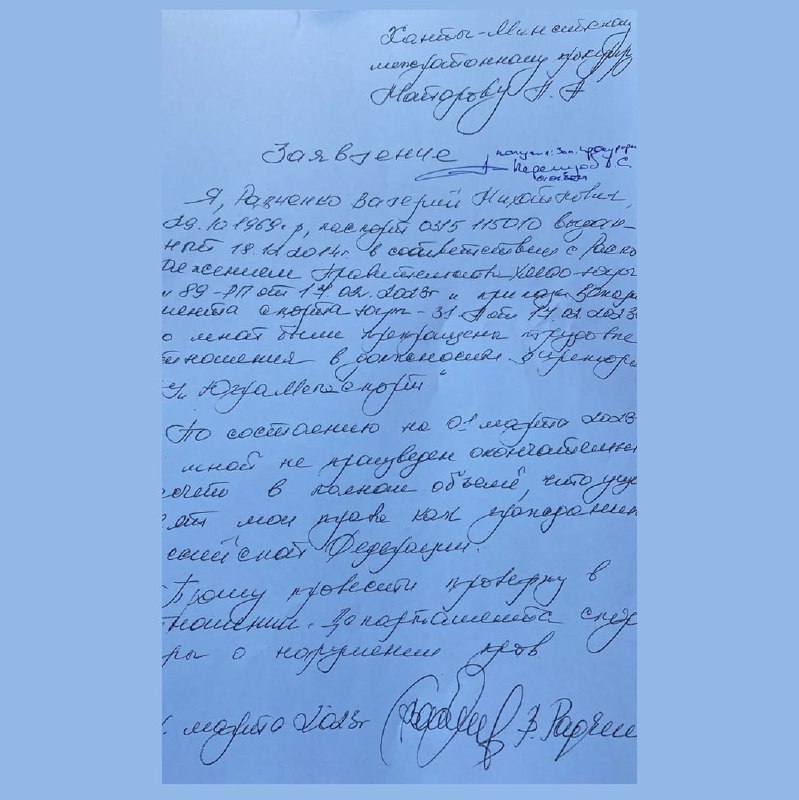 Ханты-Мансийскому
межрайонному прокурору
Майорову П. А
Заявление
получил: Зам. прокурора
Я, Радченко Валерий Михайлович,
29.10 1969г.р, паспорт 0315 115010 выдан-
ный 18.12.2014г. в соответствии с Распо
ряжением Правительства ХМАО-Югры
89-РП от 17.02.2023г и приказ Депар
мента спорта Югры - 31 от 17.02.2023
о мной были прекращены трудовые
тношения в должности директора
"ЮграМегаСпорт"
По состоянию на 01 марта 2023
мной не произведен окончательный
счёт в полном объеме, что уще
ят мои права как гражданина
ссийской Федерации.
Прошу провести проверку в
тношении Департамента спор
ры о нарушении прав
марта 2023г В. Радченко